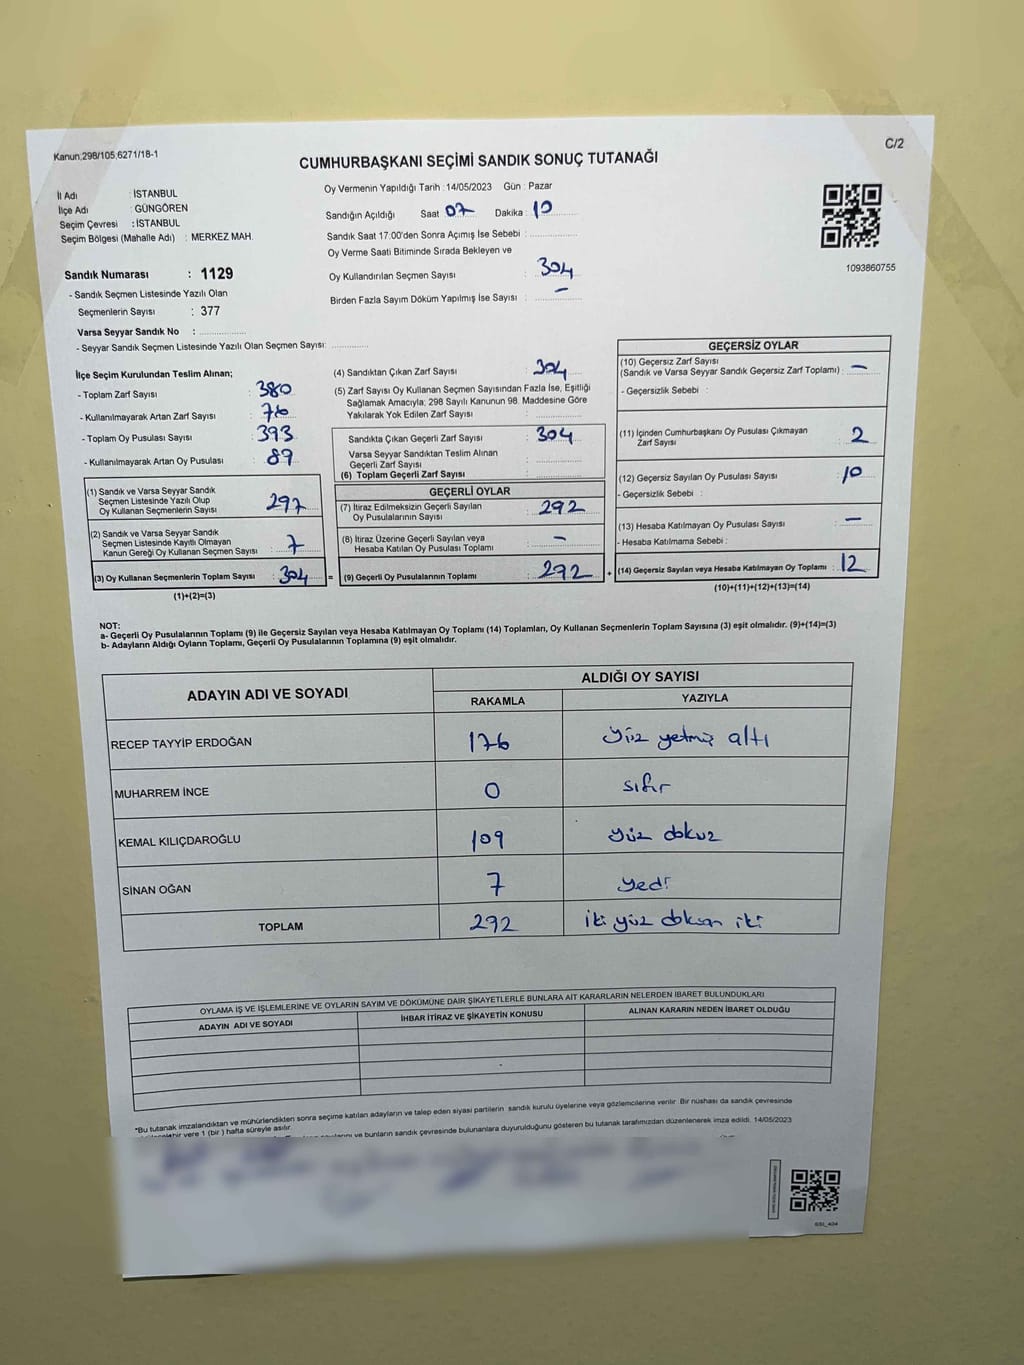 Kanun:298/105;6271/18-1
C/2
CUMHURBAŞKANI SEÇİMİ SANDIK SONUÇ TUTANAĞI
İl Adı : İSTANBUL
İlçe Adı : GÜNGÖREN
Seçim Çevresi : İSTANBUL
Seçim Bölgesi (Mahalle Adı) : MERKEZ MAH.
Sandık Numarası : 1129
- Sandık Seçmen Listesinde Yazılı Olan
Seçmenlerin Sayısı : 377
Varsa Seyyar Sandık No :
- Seyyar Sandık Seçmen Listesinde Yazılı Olan Seçmen Sayısı:
Oy Vermenin Yapıldığı Tarih : 14/05/2023 Gün : Pazar
Sandığın Açıldığı Saat 07 Dakika : 10
Sandık Saat 17:00'den Sonra Açımış İse Sebebi :
Oy Verme Saati Bitiminde Sırada Bekleyen ve
Oy Kullandırılan Seçmen Sayısı : 304
Birden Fazla Sayım Döküm Yapılmış İse Sayısı : –
1093860755
İlçe Seçim Kurulundan Teslim Alınan;
- Toplam Zarf Sayısı : 380
- Kullanılmayarak Artan Zarf Sayısı : 76
- Toplam Oy Pusulası Sayısı : 393
- Kullanılmayarak Artan Oy Pusulası : 89
(1) Sandık ve Varsa Seyyar Sandık
Seçmen Listesinde Yazılı Olup
Oy Kullanan Seçmenlerin Sayısı : 297
(2) Sandık ve Varsa Seyyar Sandık
Seçmen Listesinde Kayıtlı Olmayan
Kanun Gereği Oy Kullanan Seçmen Sayısı : 7
(3) Oy Kullanan Seçmenlerin Toplam Sayısı : 304 =
(1)+(2)=(3)
(4) Sandıktan Çıkan Zarf Sayısı : 304
(5) Zarf Sayısı Oy Kullanan Seçmen Sayısından Fazla İse, Eşitliği
Sağlamak Amacıyla; 298 Sayılı Kanunun 98. Maddesine Göre
Yakılarak Yok Edilen Zarf Sayısı :
Sandıkta Çıkan Geçerli Zarf Sayısı : 304
Varsa Seyyar Sandıktan Teslim Alınan
Geçerli Zarf Sayısı :
(6) Toplam Geçerli Zarf Sayısı :
GEÇERLİ OYLAR
(7) İtiraz Edilmeksizin Geçerli Sayılan
Oy Pusulalarının Sayısı : 292
(8) İtiraz Üzerine Geçerli Sayılan veya
Hesaba Katılan Oy Pusulası Toplamı : –
(9) Geçerli Oy Pusulalarının Toplamı : 292 +
GEÇERSİZ OYLAR
(10) Geçersiz Zarf Sayısı
(Sandık ve Varsa Seyyar Sandık Geçersiz Zarf Toplamı) : –
- Geçersizlik Sebebi :
(11) İçinden Cumhurbaşkanı Oy Pusulası Çıkmayan
Zarf Sayısı : 2
(12) Geçersiz Sayılan Oy Pusulası Sayısı : 10
- Geçersizlik Sebebi :
(13) Hesaba Katılmayan Oy Pusulası Sayısı : –
- Hesaba Katılmama Sebebi :
(14) Geçersiz Sayılan veya Hesaba Katılmayan Oy Toplamı : 12
(10)+(11)+(12)+(13)=(14)
NOT:
a- Geçerli Oy Pusulalarının Toplamı (9) ile Geçersiz Sayılan veya Hesaba Katılmayan Oy Toplamı (14) Toplamları, Oy Kullanan Seçmenlerin Toplam Sayısına (3) eşit olmalıdır. (9)+(14)=(3)
b- Adayların Aldığı Oyların Toplamı, Geçerli Oy Pusulalarının Toplamına (9) eşit olmalıdır.
ADAYIN ADI VE SOYADI
ALDIĞI OY SAYISI
RAKAMLA YAZIYLA
RECEP TAYYİP ERDOĞAN 176 yüz yetmiş altı
MUHARREM İNCE 0 sıfır
KEMAL KILIÇDAROĞLU 109 yüz dokuz
SİNAN OĞAN 7 yedi
TOPLAM 292 iki yüz doksan iki
OYLAMA İŞ VE İŞLEMLERİNE VE OYLARIN SAYIM VE DÖKÜMÜNE DAİR ŞİKAYETLERLE BUNLARA AİT KARARLARIN NELERDEN İBARET BULUNDUKLARI
ADAYIN ADI VE SOYADI İHBAR İTİRAZ VE ŞİKAYETİN KONUSU ALINAN KARARIN NEDEN İBARET OLDUĞU
*Bu tutanak imzalandıktan ve mühürlendikten sonra seçime katılan adayların ve talep eden siyasi partilerin sandık kurulu üyelerine veya gözlemcilerine verilir. Bir nüshası da sandık çevresinde
yere 1 (bir) hafta süreyle asılır.
ve bunların sandık çevresinde bulunanlara duyurulduğunu gösteren bu tutanak tarafımızdan düzenlenerek imza edildi. 14/05/2023